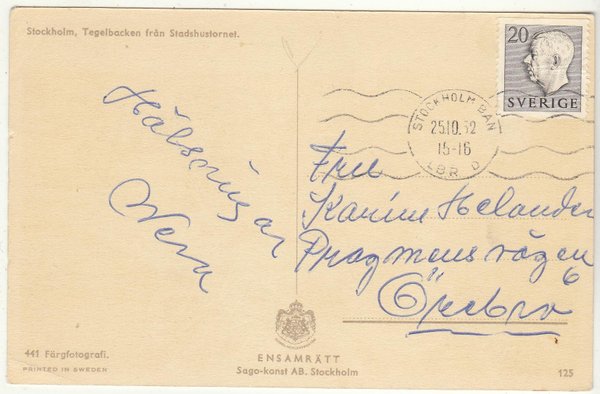 Stockholm, Tegelbacken från Stadshustornet.
20
SVERIGE
STOCKHOLM BAN
25.10.52
15-16
LBR O
Hälsningar
Wera
Karin Helander
6
Örebro
ENSAMRÄTT
Sago-konst AB. Stockholm
441 Färgfotografi.
PRINTED IN SWEDEN
125